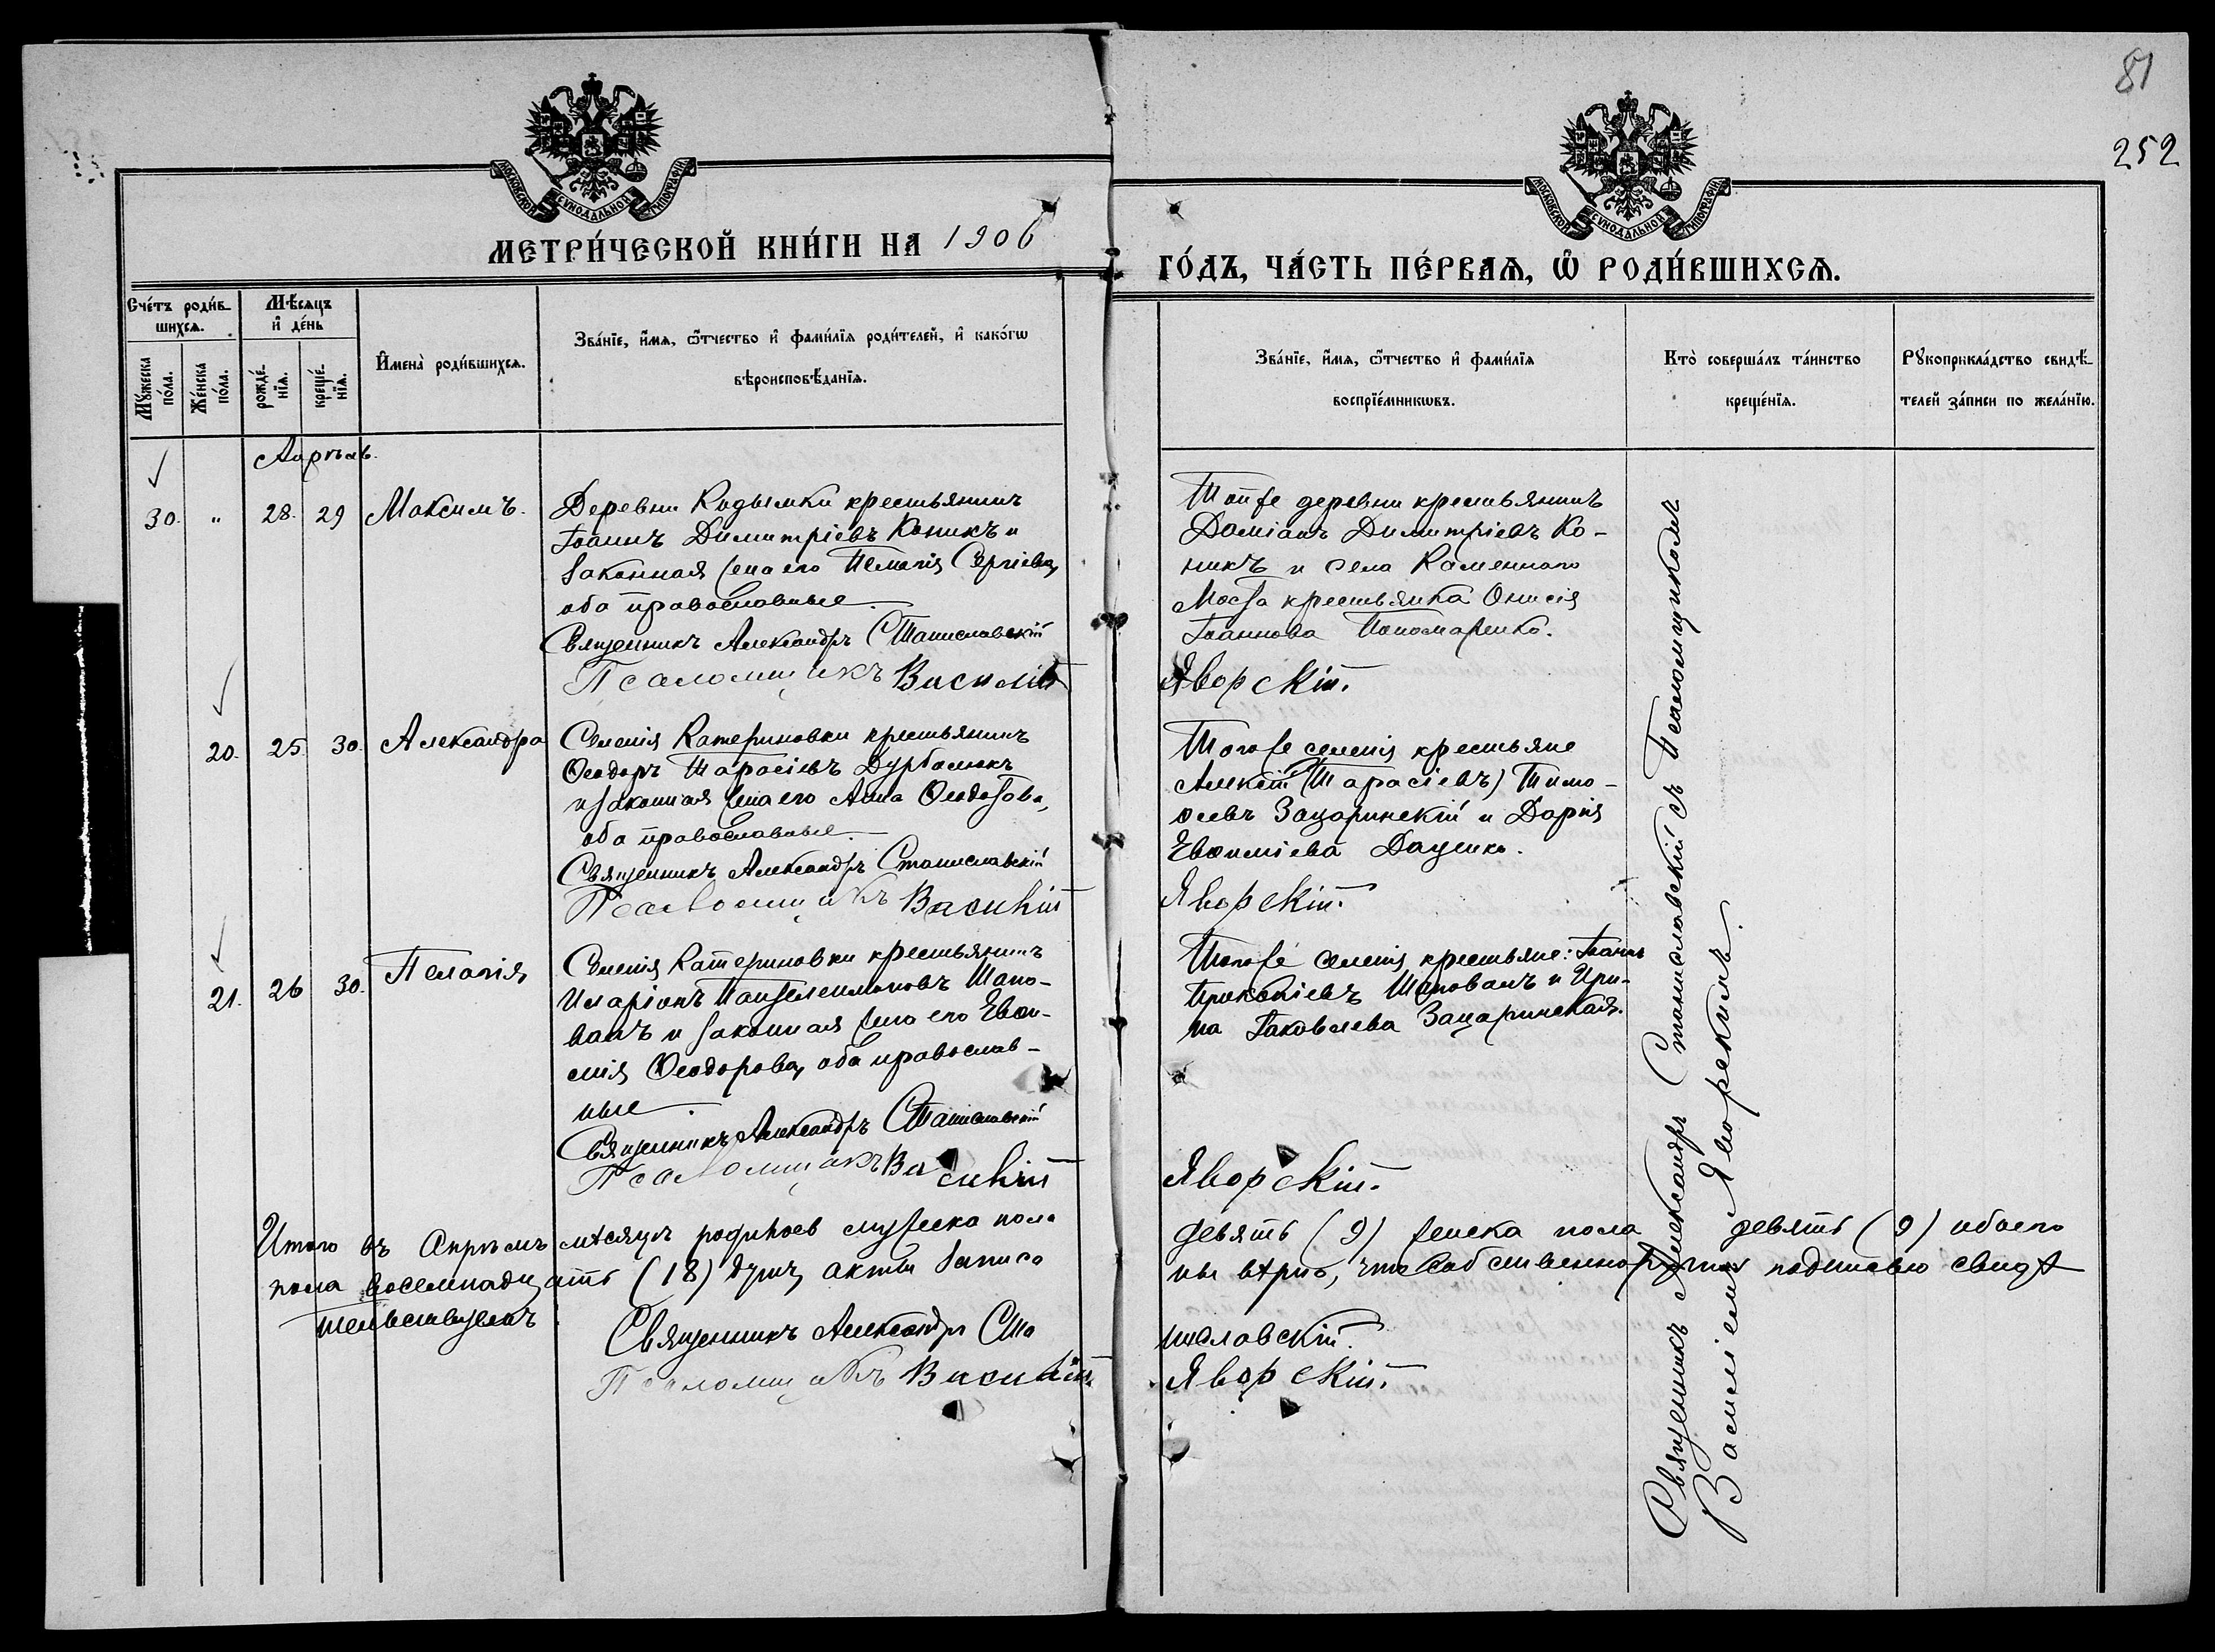 81
252
МОСКОВСКОЙ СѴНОДАЛЬНОЙ ТИПОГРАФІИ
МОСКОВСКОЙ СѴНОДАЛЬНОЙ ТИПОГРАФІИ
МЕТРИ́ЧЕСКОЙ КНИ́ГИ НА 1906
ГО́ДЪ, ЧА́СТЬ ПЕ́РВАѦ, Ѡ РОДИ́ВШИХСѦ.
Сче́тъ роди́в-
шихсѧ.
Мꙋжеска
по́ла.
Же́нска
по́ла.
Мѣсѧцъ
и де́нь
рожде́-
нїѧ.
креще́-
нїѧ.
Имена̀ роди́вшихсѧ.
Зва́нїе, и́мѧ, ѻтчество и фами́лїѧ роди́телей, и како́гѡ
вѣроисповѣ́данїѧ.
Зва́нїе, и́мѧ, ѻтчество и фами́лїѧ
воспрїе́мникѡвъ.
Кто̀ соверша́лъ та́инство
креще́нїѧ.
Рꙋкоприкла́дство свидѣ́-
телей за́писи по жела́нїю.
Апрѣль.
30. " 28. 29 Максимъ.
Деревни Кидымки крестьянинъ
Іоаннъ Димитріевъ Коникъ и
законная жена его Пелагія Сергіева,
оба православные.
Священникъ Александръ Станиславскій
Псаломщикъ Василій
Той же деревни крестьянинъ
Даміанъ Димитріевъ Ко-
никъ и села Каменнаго
Моста крестьянка Онисія
Іоаннова Пономаренко.
Яворскій.
20. 25. 30. Александра
Селенія Катериновки крестьянинъ
Ѳеодоръ Тарасіевъ
и законная жена его Анна Ѳеодотова,
оба православные.
Священникъ Александръ Станиславскій
Псаломщикъ Василій
Того же селенія крестьяне
Алексій (Тарасіевъ) Тимо-
ѳеевъ Зацаринскій и Дарія
Евѳиміева Даценко.
Яворскій.
21. 26 30. Пелагія
Селенія Катериновки крестьянинъ
Иларіонъ Пантелеимоновъ Шапо-
валъ и законная жена его Евѳи-
мія Ѳеодорова, оба православ-
ные.
Священникъ Александръ Станиславскій
Псаломщикъ Василій
Того же селенія крестьяне: Іоаннъ
Прокопіевъ Шаповалъ и Ири-
на Іаковлева Зацаринская.
Яворскій.
Священникъ Александръ Станиславскій съ Псаломщикомъ
Василіемъ Яворскимъ.
Итого въ Апрѣлѣ мѣсяцѣ родилось мужеска пола девять (9) женска пола девять (9) обоего
пола восемнадцать (18) душъ, акты записаны вѣрно, что собственноручно подписью свидѣ
тельствуемъ
Священникъ Александръ Станиславскій.
Псаломщикъ Василій Яворскій.